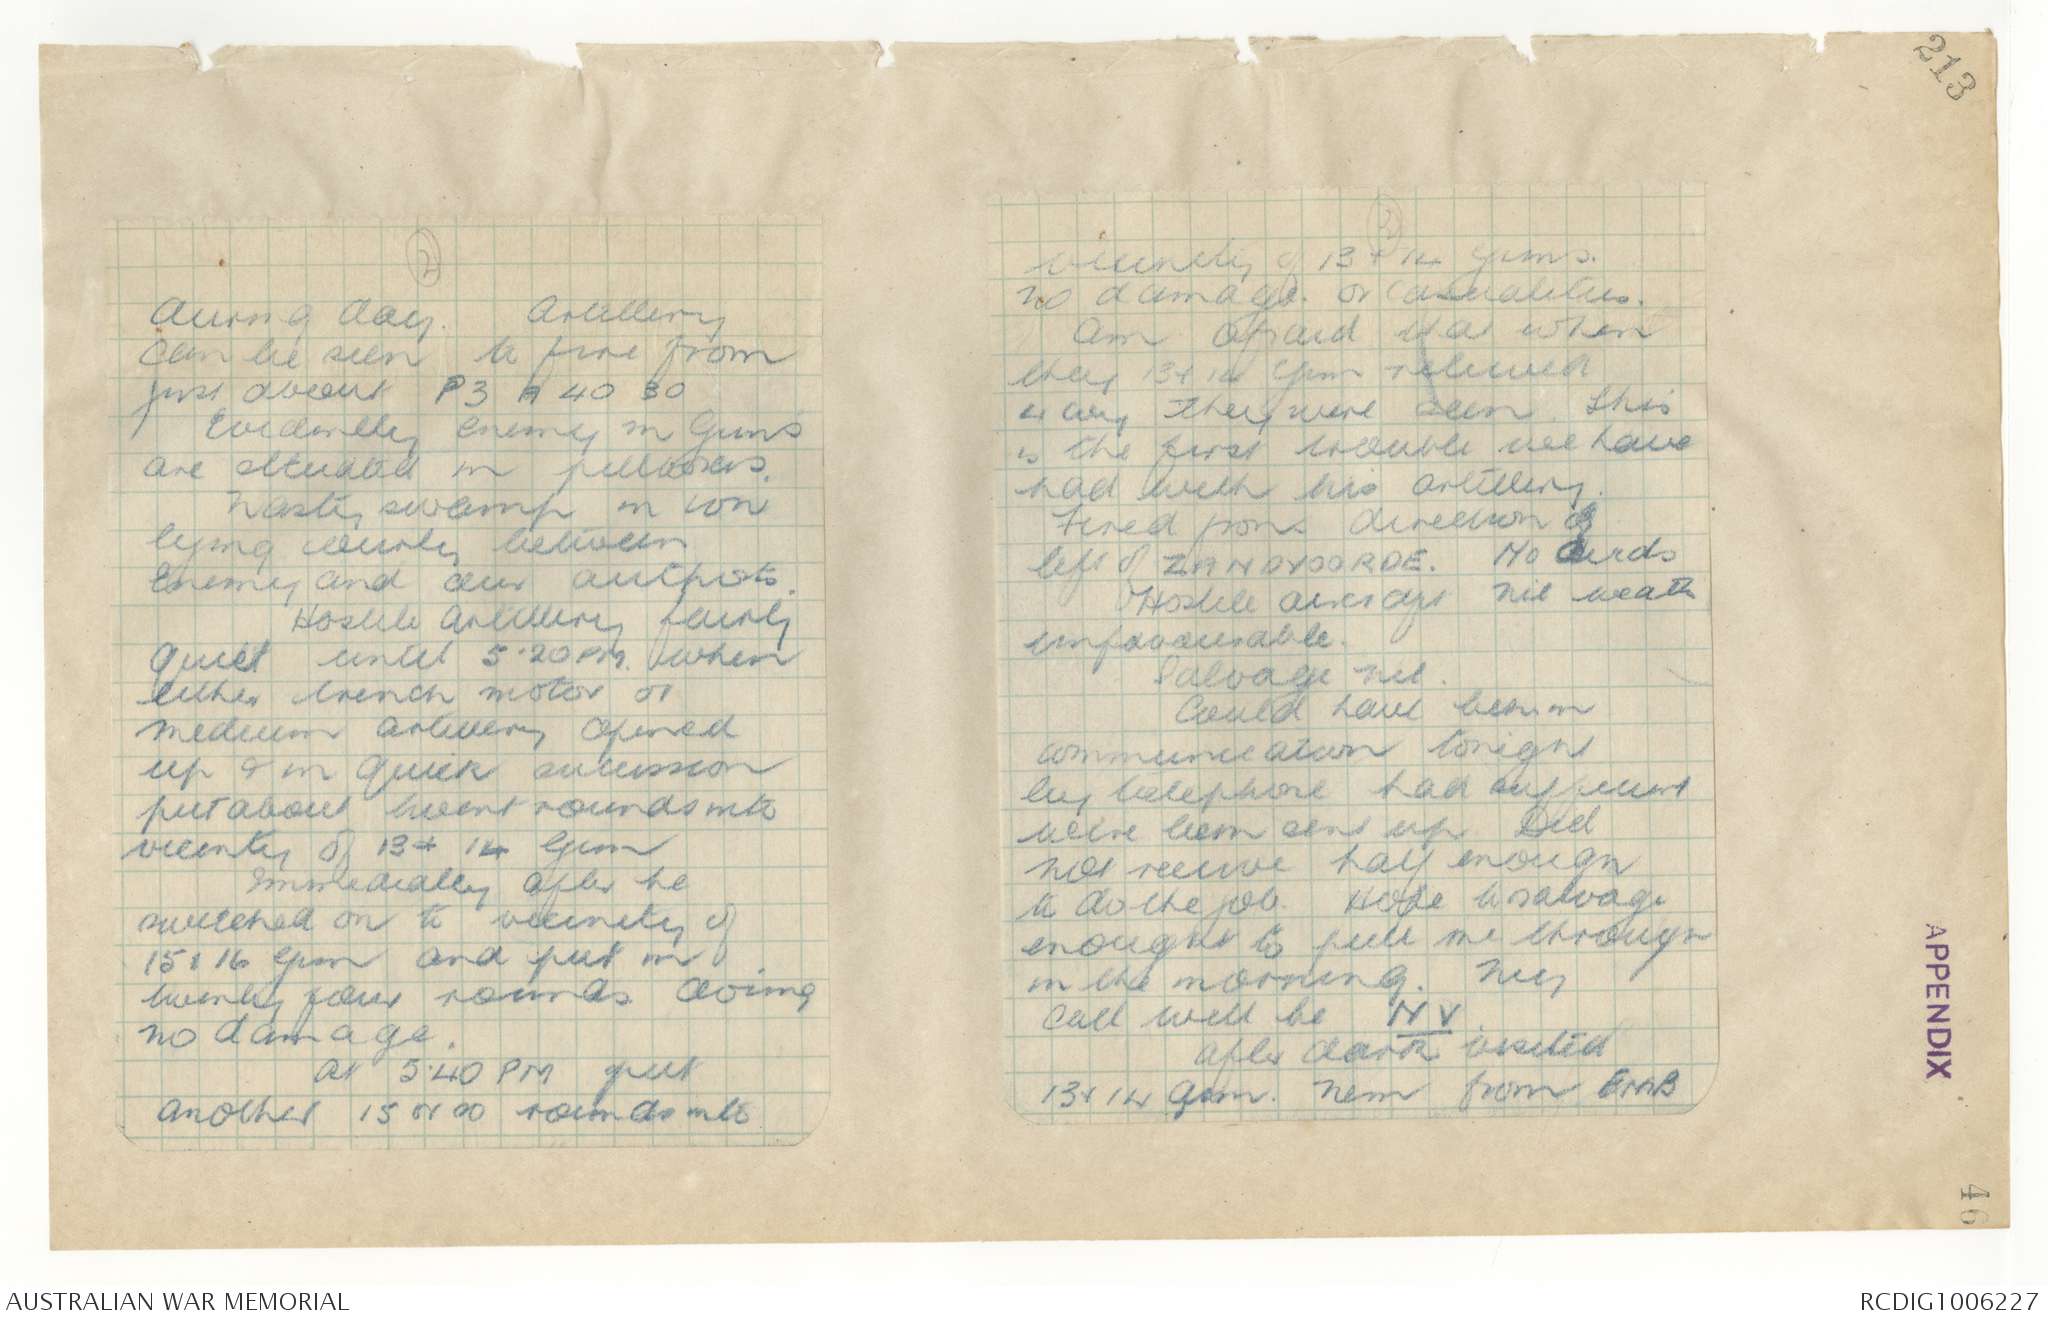 213
(2)
during day. Artillery
can be seen to fire from
just about P3 A 40 30
Evidently enemy m Guns
are situated in pillboxes.
Nasty swamp m
lying between
Enemy and our outposts.
Hostile Artillery fairly
quiet until 5.20 PM. when
either trench motor or
medium artillery opened
up & in quick sucession
put about twent rounds into
vicinty of 13 + 14 Gun
Immediatly after he
switched on to vicinity of
15 & 16 Gun and put in
twenty four rounds doing
no damage.
At 5.40 PM put
another 15 or 20 rounds into
(3)
vicinity of 13 + 14 Guns.
No damage or casualities.
Am afraid that when
they 13 & 14 Gun relieved
they were seen. This
is the first trouble we have
had with his artillery.
Fired from direction of
left of ZANDVOORDE. No
Hostile aircraft Nil weath
unfavourable.
Salvage Nil.
Could have been in
communication tonight
by telephone had sufficient
wire been sent up. Did
not receive half enough
to do the job. Hope to salvage
enough to pull me through
in the morning. My
Call will be NV
After dark visited
13 & 14 Gun. from
APPENDIX
46
AUSTRALIAN WAR MEMORIAL
RCDIG1006227